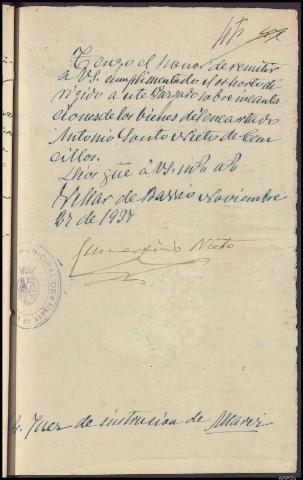 Tengo el honor de remitir
á VS. cumplimentado el exhorto di
rigido a este Juzgado sobre incauta
ciones de los bienes del encartado
Antonio Souto Nieto de Cem
cillos.
Dios gūe á VS. m. a.
Villar de Barrio Noviembre
27 de 1937
Gumersindo Nieto
MUNICIPAL DE
Sr. Juez de instrucion de Allariz